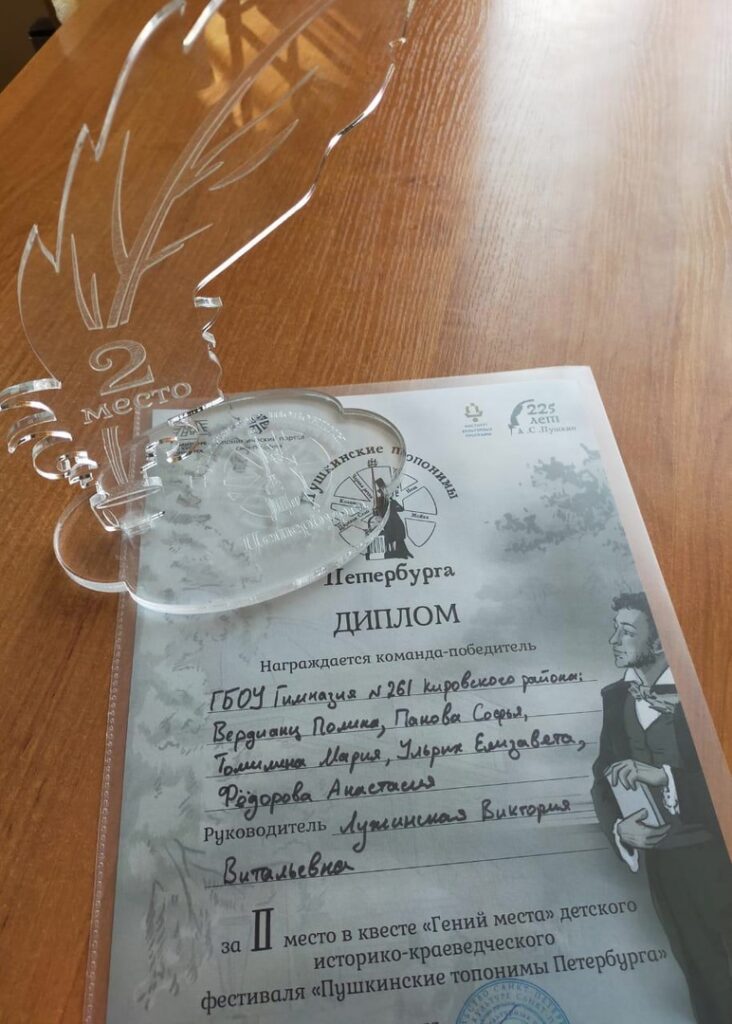 2
место
225
лет
А.С.Пушкин
Пушкинские топонимы
Петербурга
ДИПЛОМ
Награждается команда-победитель
ГБОУ Гимназия №261 Кировского района:
Вердианц Полина, Панова Софья,
Томилина Мария, Ульрих Елизавета,
Фёдорова Анастасия
Руководитель Лужинская Виктория
Витальевна
за II место в квесте «Гений места» детского
историко-краеведческого
фестиваля «Пушкинские топонимы Петербурга»